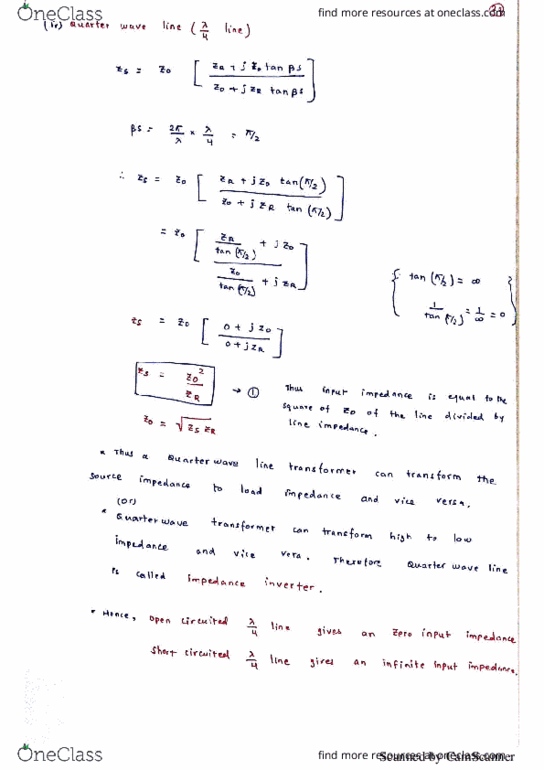 OneClass
find more resources at oneclass.com
(iv) Quarter wave line (λ/4 line)
Zs = Z0 [ (ZR + j Z0 tan βs) / (Z0 + j ZR tan βs) ]
βs = 2π/λ × λ/4 = π/2
∴ Zs = Z0 [ (ZR + j Z0 tan(π/2)) / (Z0 + j ZR tan(π/2)) ]
= Z0 [ (ZR/tan(π/2) + j Z0) / (Z0/tan(π/2) + j ZR) ]
{ ∵ tan(π/2) = ∞
1/tan(π/2) = 1/∞ = 0 }
Zs = Z0 [ (0 + j Z0) / (0 + j ZR) ]
Zs = Z0² / ZR → ①
Z0 = √Zs ZR
Thus input impedance is equal to the
square of Z0 of the line divided by
line impedance.
* Thus a Quarter wave line transformer can transform the
source impedance to load impedance and vice versa.
(or)
* Quarter wave transformer can transform high to low
impedance and vice vera. Therefore Quarter wave line
is called impedance inverter.
* Hence, open circuited λ/4 line gives an Zero input impedance
Short circuited λ/4 line gives an infinite input impedance.
OneClass
find more resources at oneclass.com
Scanned by CamScanner